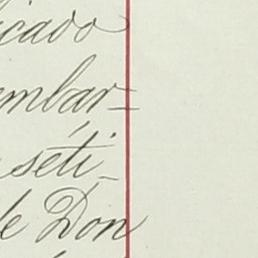 icado
embar=
séti-
de Don